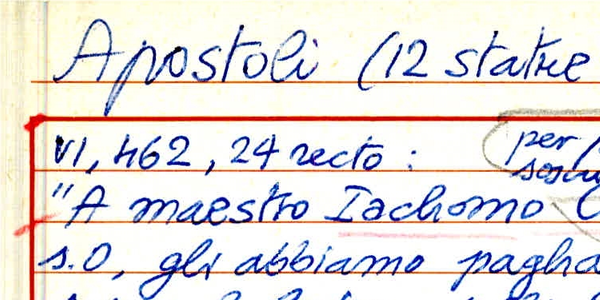 Apostoli (12 statue
VI, 462, 24 recto:
per
"A maestro Iachomo
s.0, gli abbiamo pagha